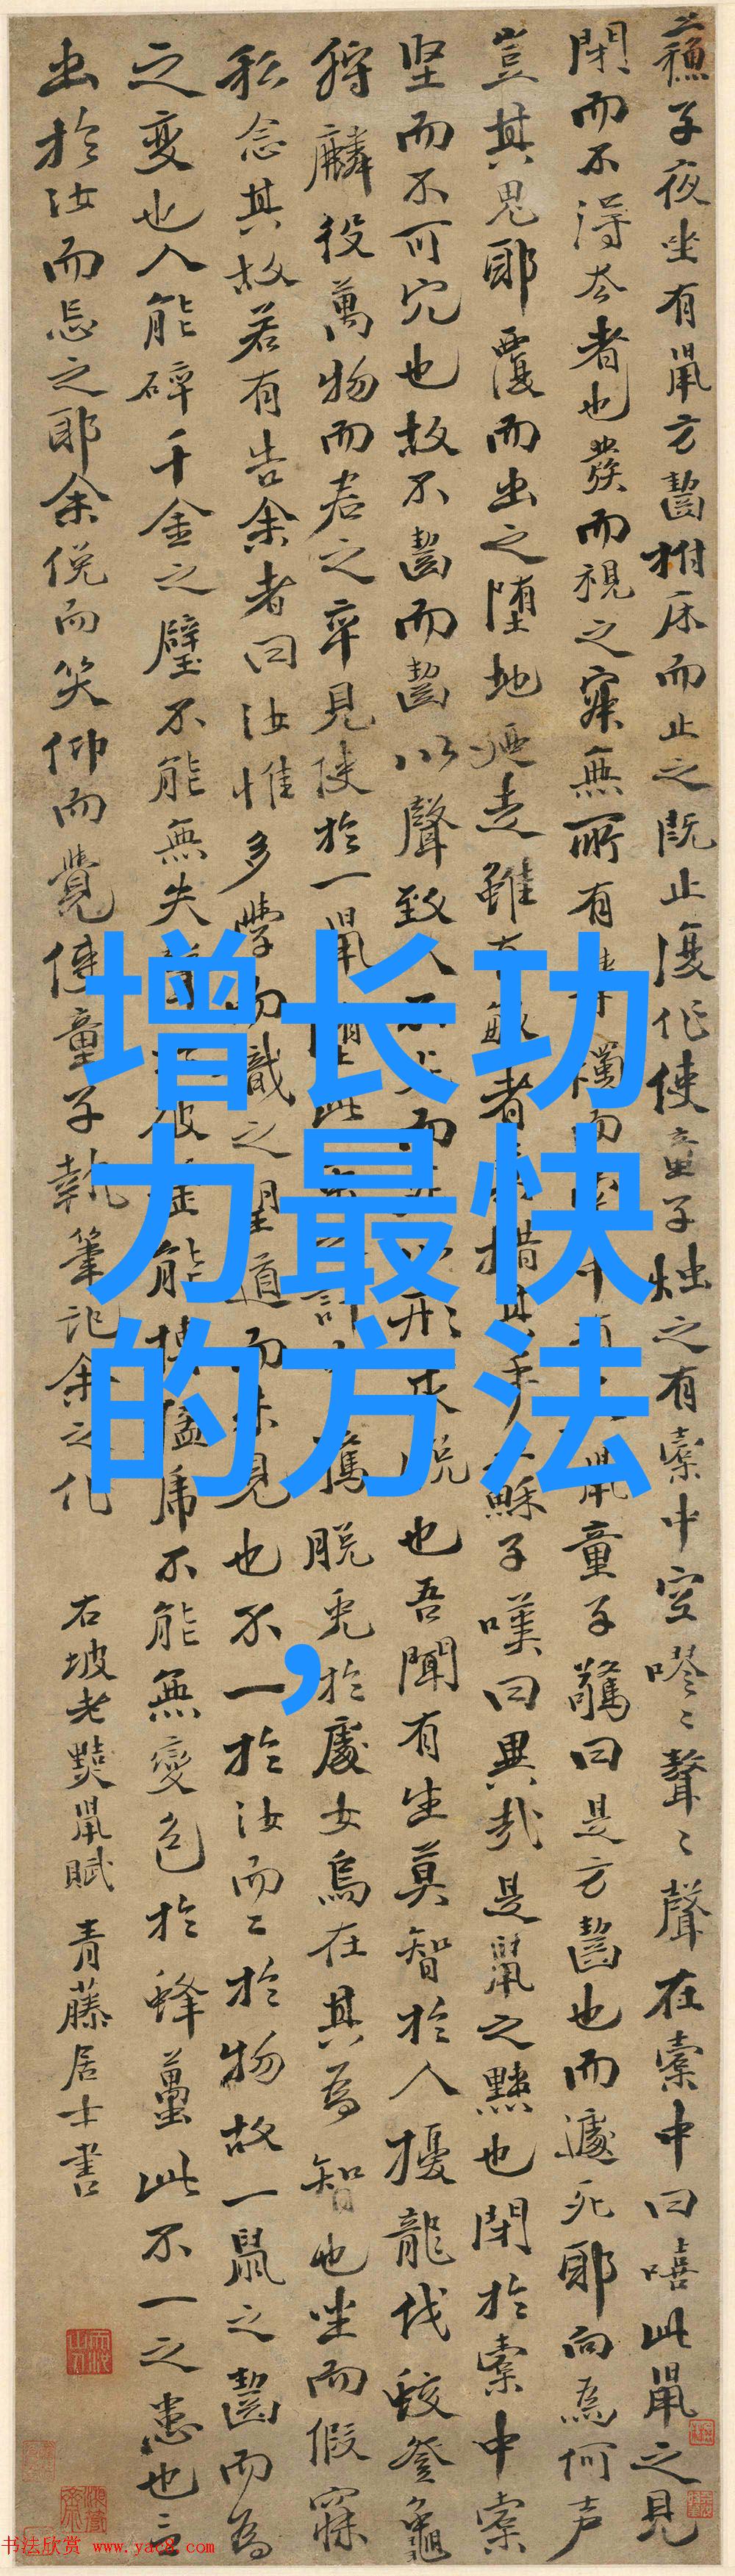 蘇子夜坐有鼠方齧拊床而止之既止復作使童子燭之有橐中空嘐〻聱〻聲在橐中曰嘻此鼠之見
閉而不得去者也發而視之寂無所有燭而中鼠童子驚曰是方齧也而遽死耶向為何声
豈其鬼耶覆而出之墮地廼走雖有敏者措其手蘇子嘆曰異哉是鼠之黠也閉於橐中橐
坚而不可穴也故不齧而齧以聲致人不而以形求脱也吾聞有生莫智於人擾龍伐蛟登龜
狩麟役萬物而君之卒見使於一鼠墮此計驚脱兔於處女烏在其為智也坐而假寐
私念其故若有告余者曰汝惟多學而識之望道而未見也不一於汝而二於物故一鼠之齧而為
之变也人能碎千金之璧不能無失聲於破釜能搏猛虎不能無變色於蜂蠆此不一之患也言
出於汝而忘之耶余俛而笑仰而覺使童子執筆記余之作
右坡老黠鼠賦 青藤居士書
增长功
力最快
的方法
，
书法欣赏 www.yac8.com